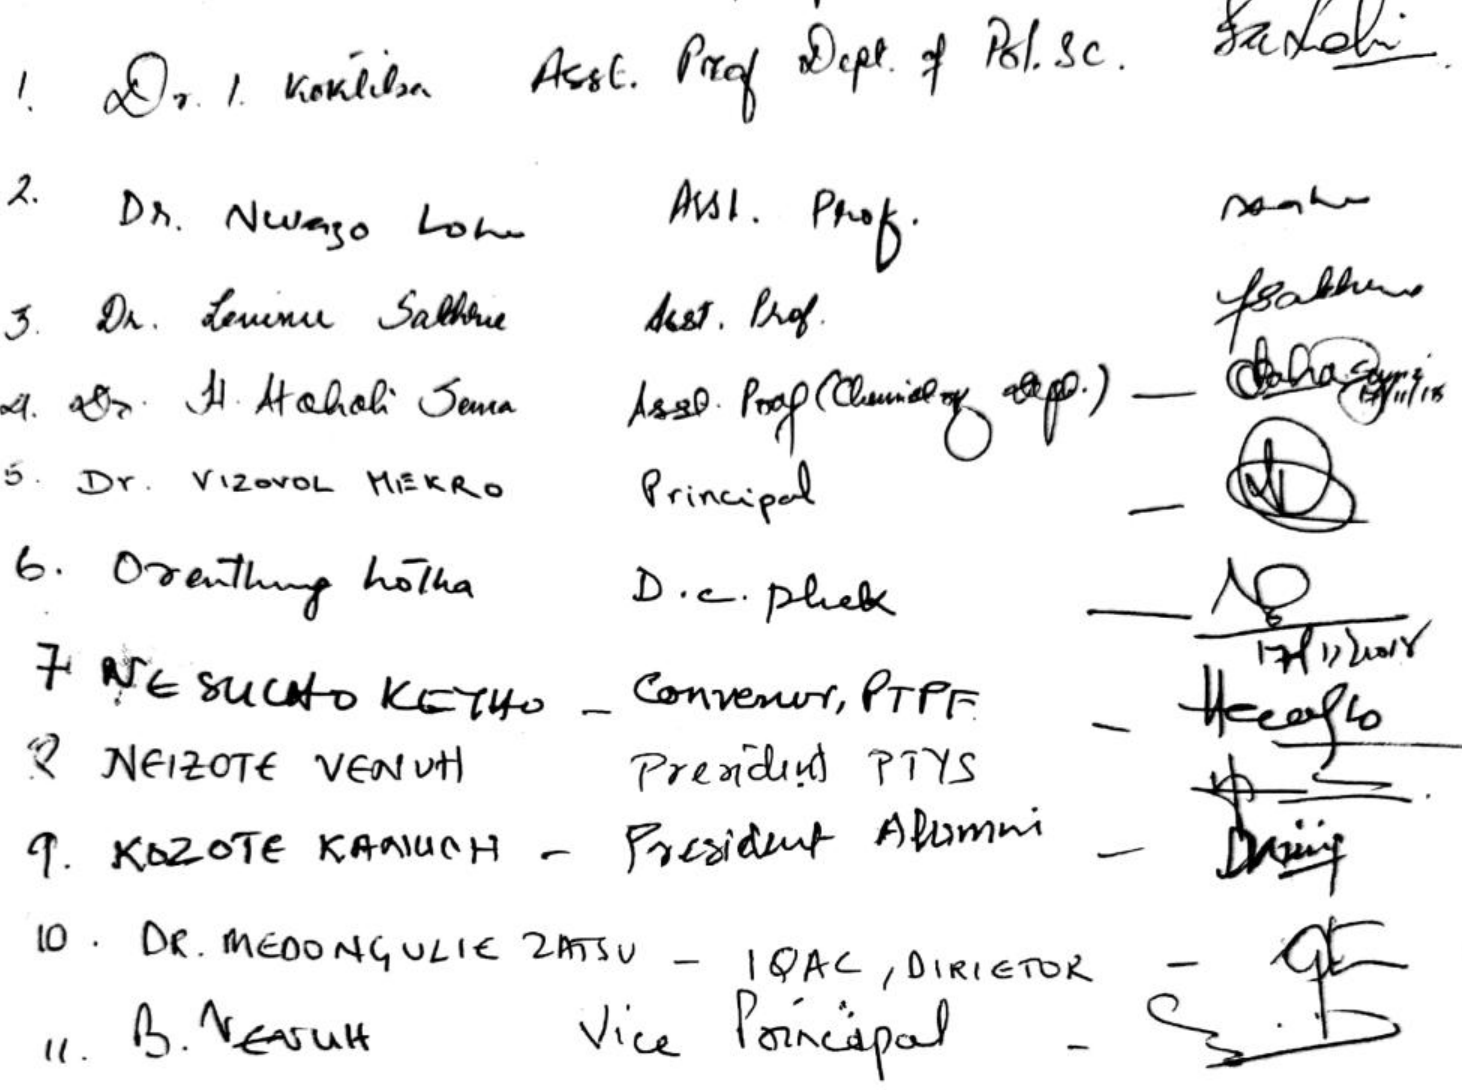 1. Dr. I. Asst. Prof Dept. of Pol. Sc.
2. Dr. Nwazo Lohe Asst. Prof.
3. Dr. Sakhrie Asst. Prof.
4. Dr. H. Atoholi Sema Asst. Prof (Chemistry dept.) — 17/11/18
5. Dr. VIZOVOL MEKRO Principal —
6. Orenthung Lotha D.C. Phek — 17/11/2018
7 NE SUCHO KETHO – Convenor, PTPF –
8 NEIZOTE VENUH President PTYS
9. KOZOTE – President Alumni –
10. DR. MEDONGULIE ZATSU – IQAC, DIRIETOR –
11. B. VENUH Vice Principal –